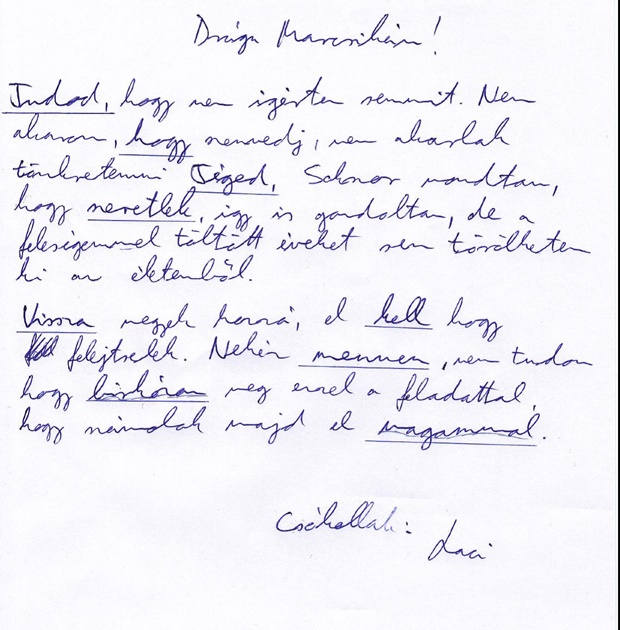 Drága Marcsikám!
Tudod, hogy nem igértem semmit. Nem
akarom, hogy szenvedj, nem akarlak
tönkretenni Téged. Sokszor mondtam,
hogy szeretlek, igy is gondoltam, de a
feleségemmel töltött éveket sem törölhetem
ki az életemből.
Vissza megyek hozzá, el kell hogy
felejtselek. Nehéz mennem, nem tudom
hogy birkózom meg ezzel a feladattal,
hogy számolok majd el magammal.
Csókollak:
Laci